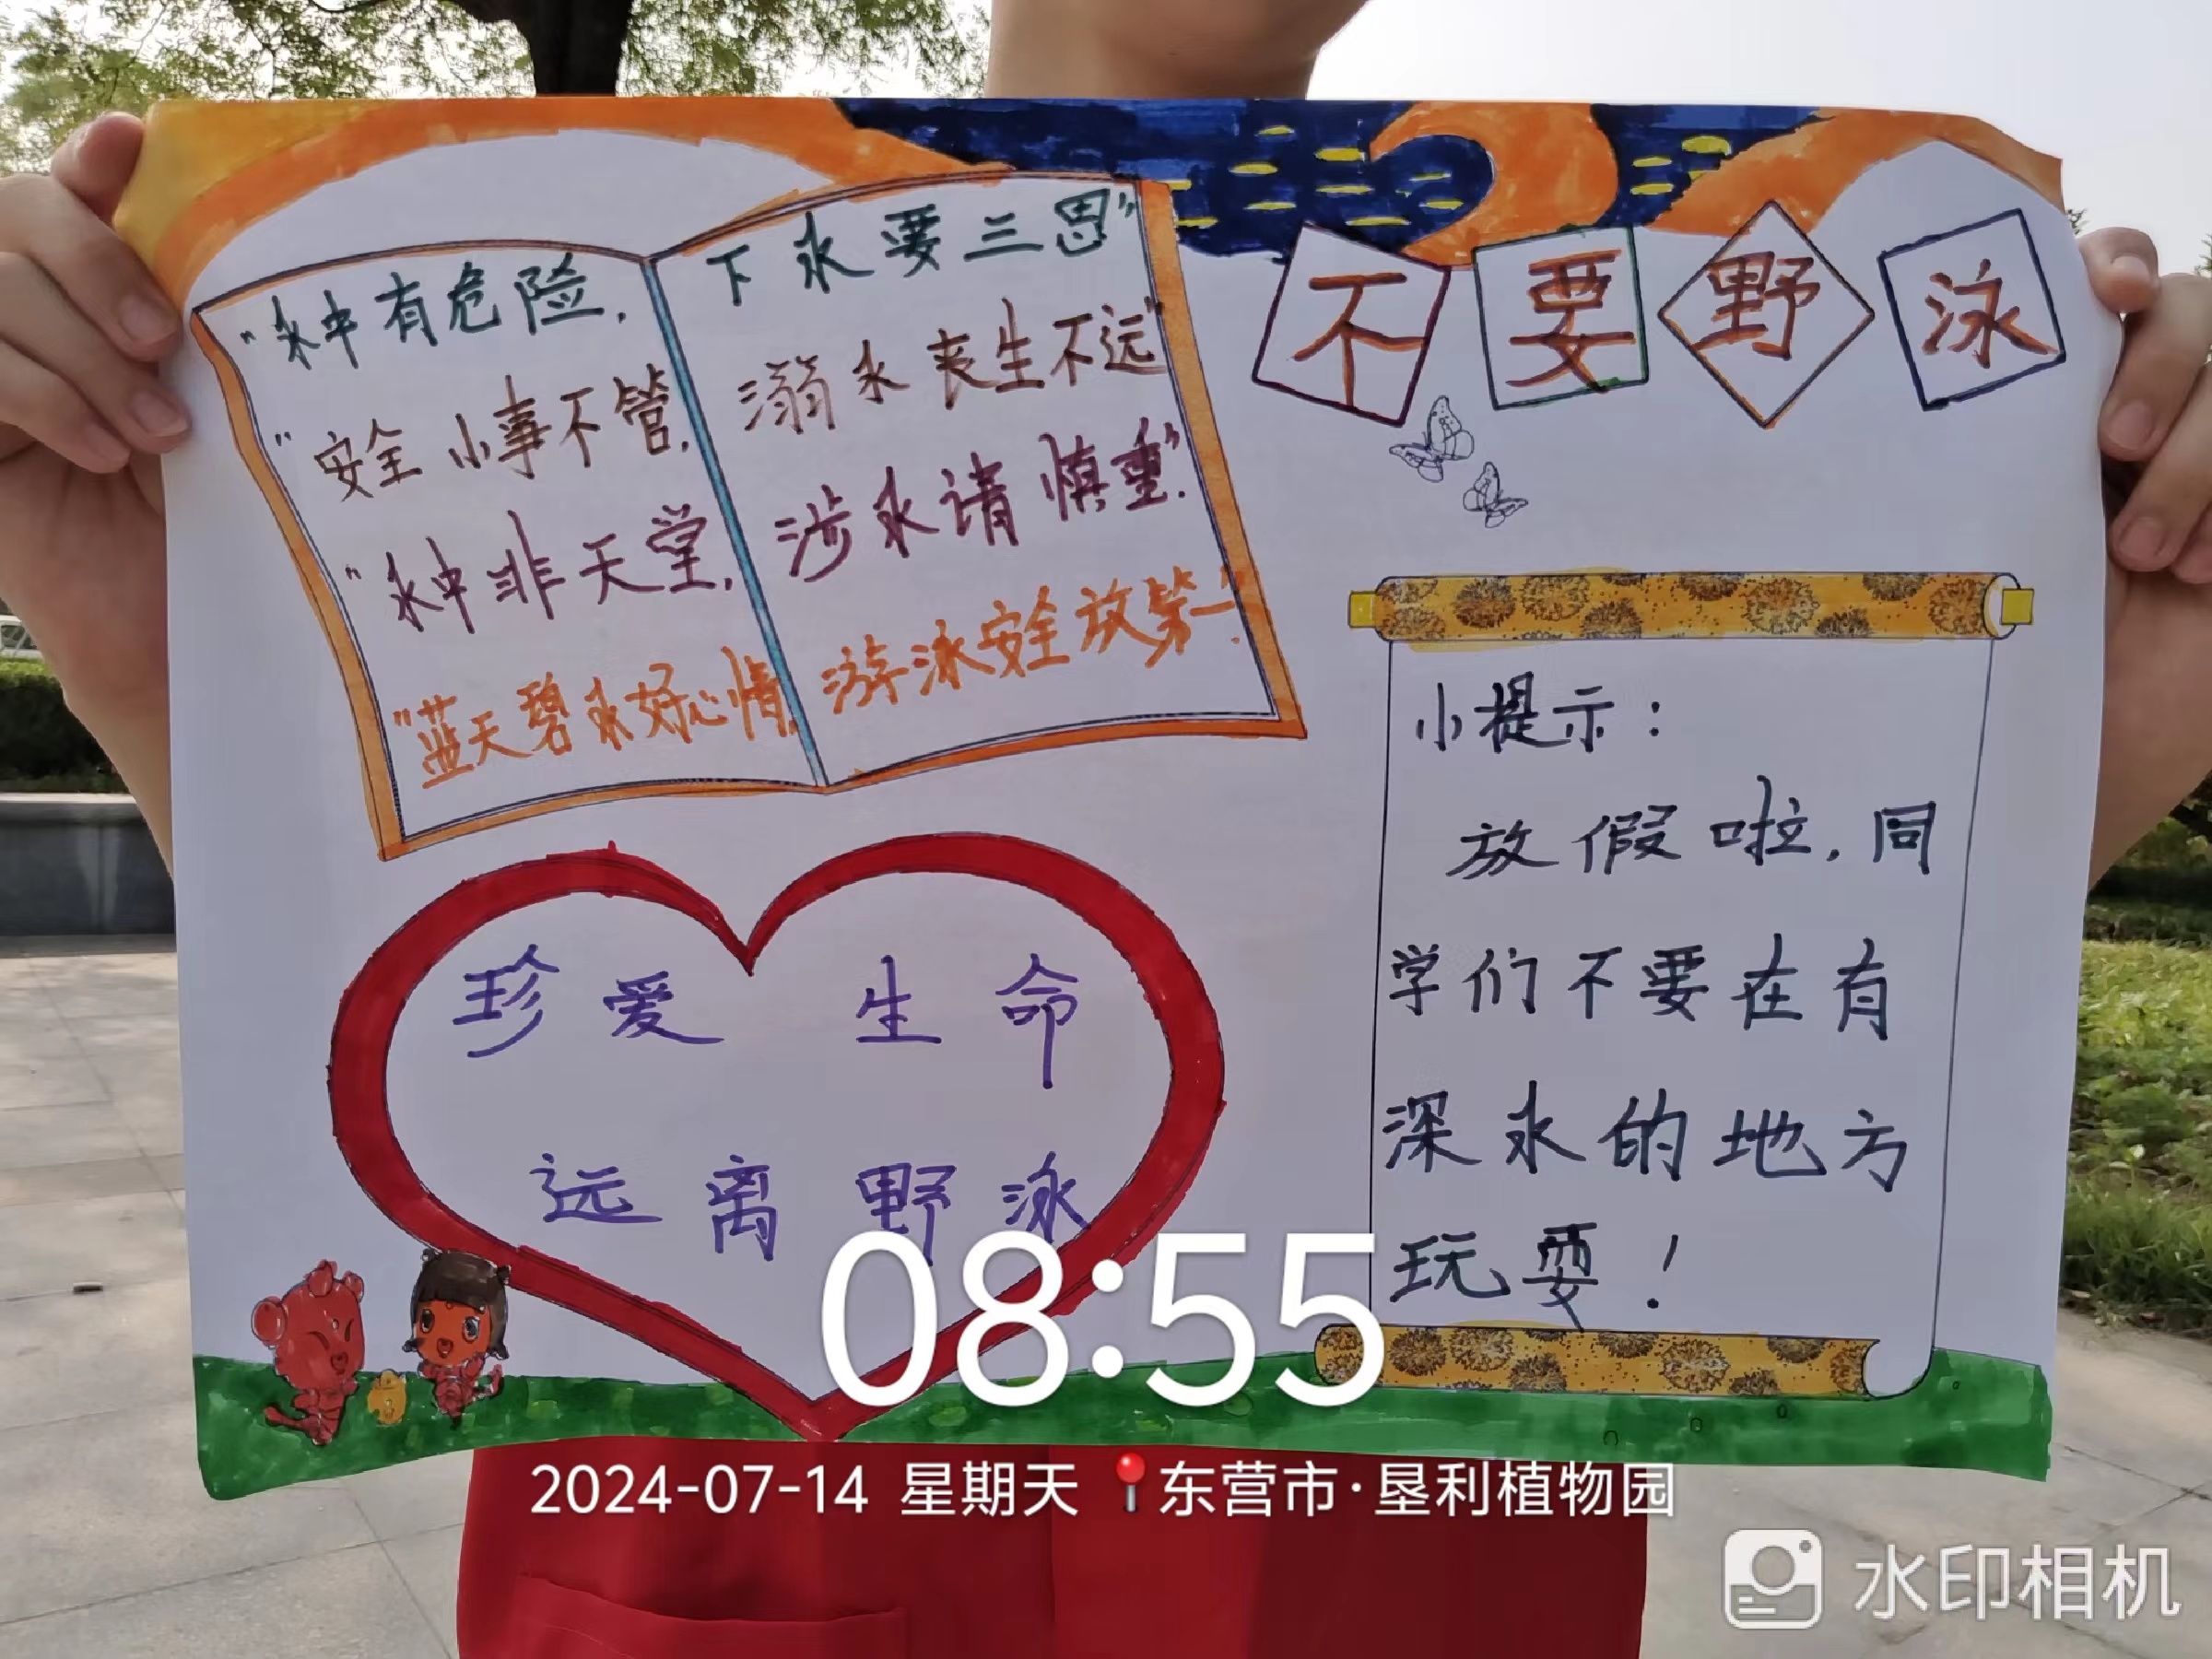 不要野泳
"水中有危险，下水要三思"
"安全小事不管，溺水丧生不远"
"水中非天堂，涉水请慎重"．
"蓝天碧水好心情，游泳安全放第一"．
小提示：
放假啦，同
学们不要在有
深水的地方
玩耍！
珍爱 生命
远离野泳
08:55
2024-07-14 星期天 东营市·垦利植物园
水印相机